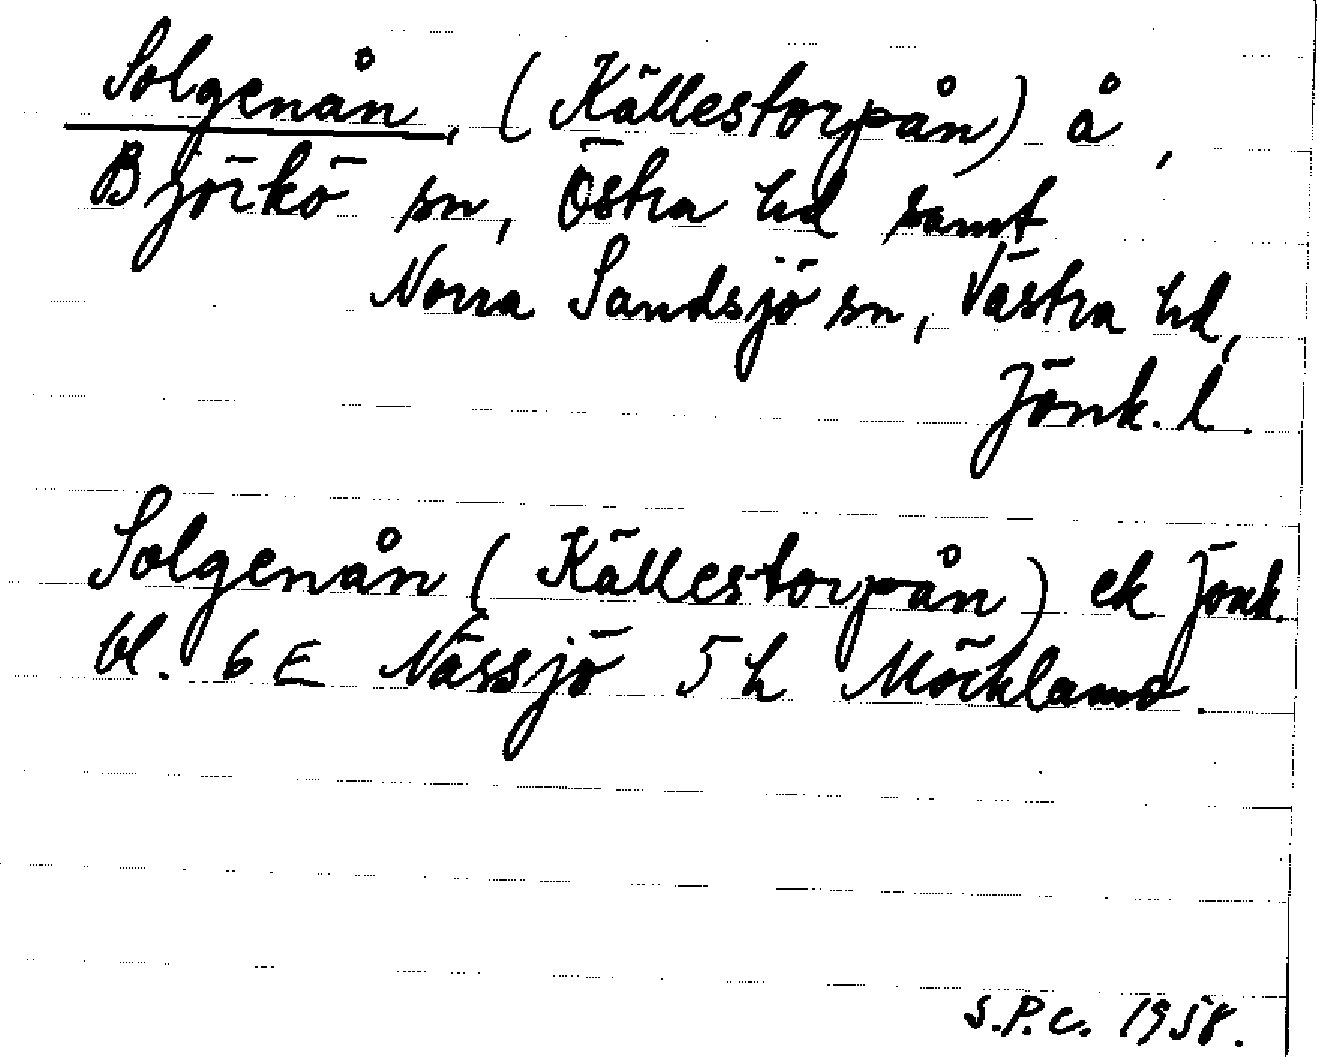 Solgenån, (Källestorpån) å,
Björkö sn, Östra hd samt
Norra Sandsjö sn, Västra hd,
Jönk. l.
Solgenån (Källestorpån) ek Jönk.
bl. 6 E Nässjö 5 h Möcklamo.
S.P.C. 1958.